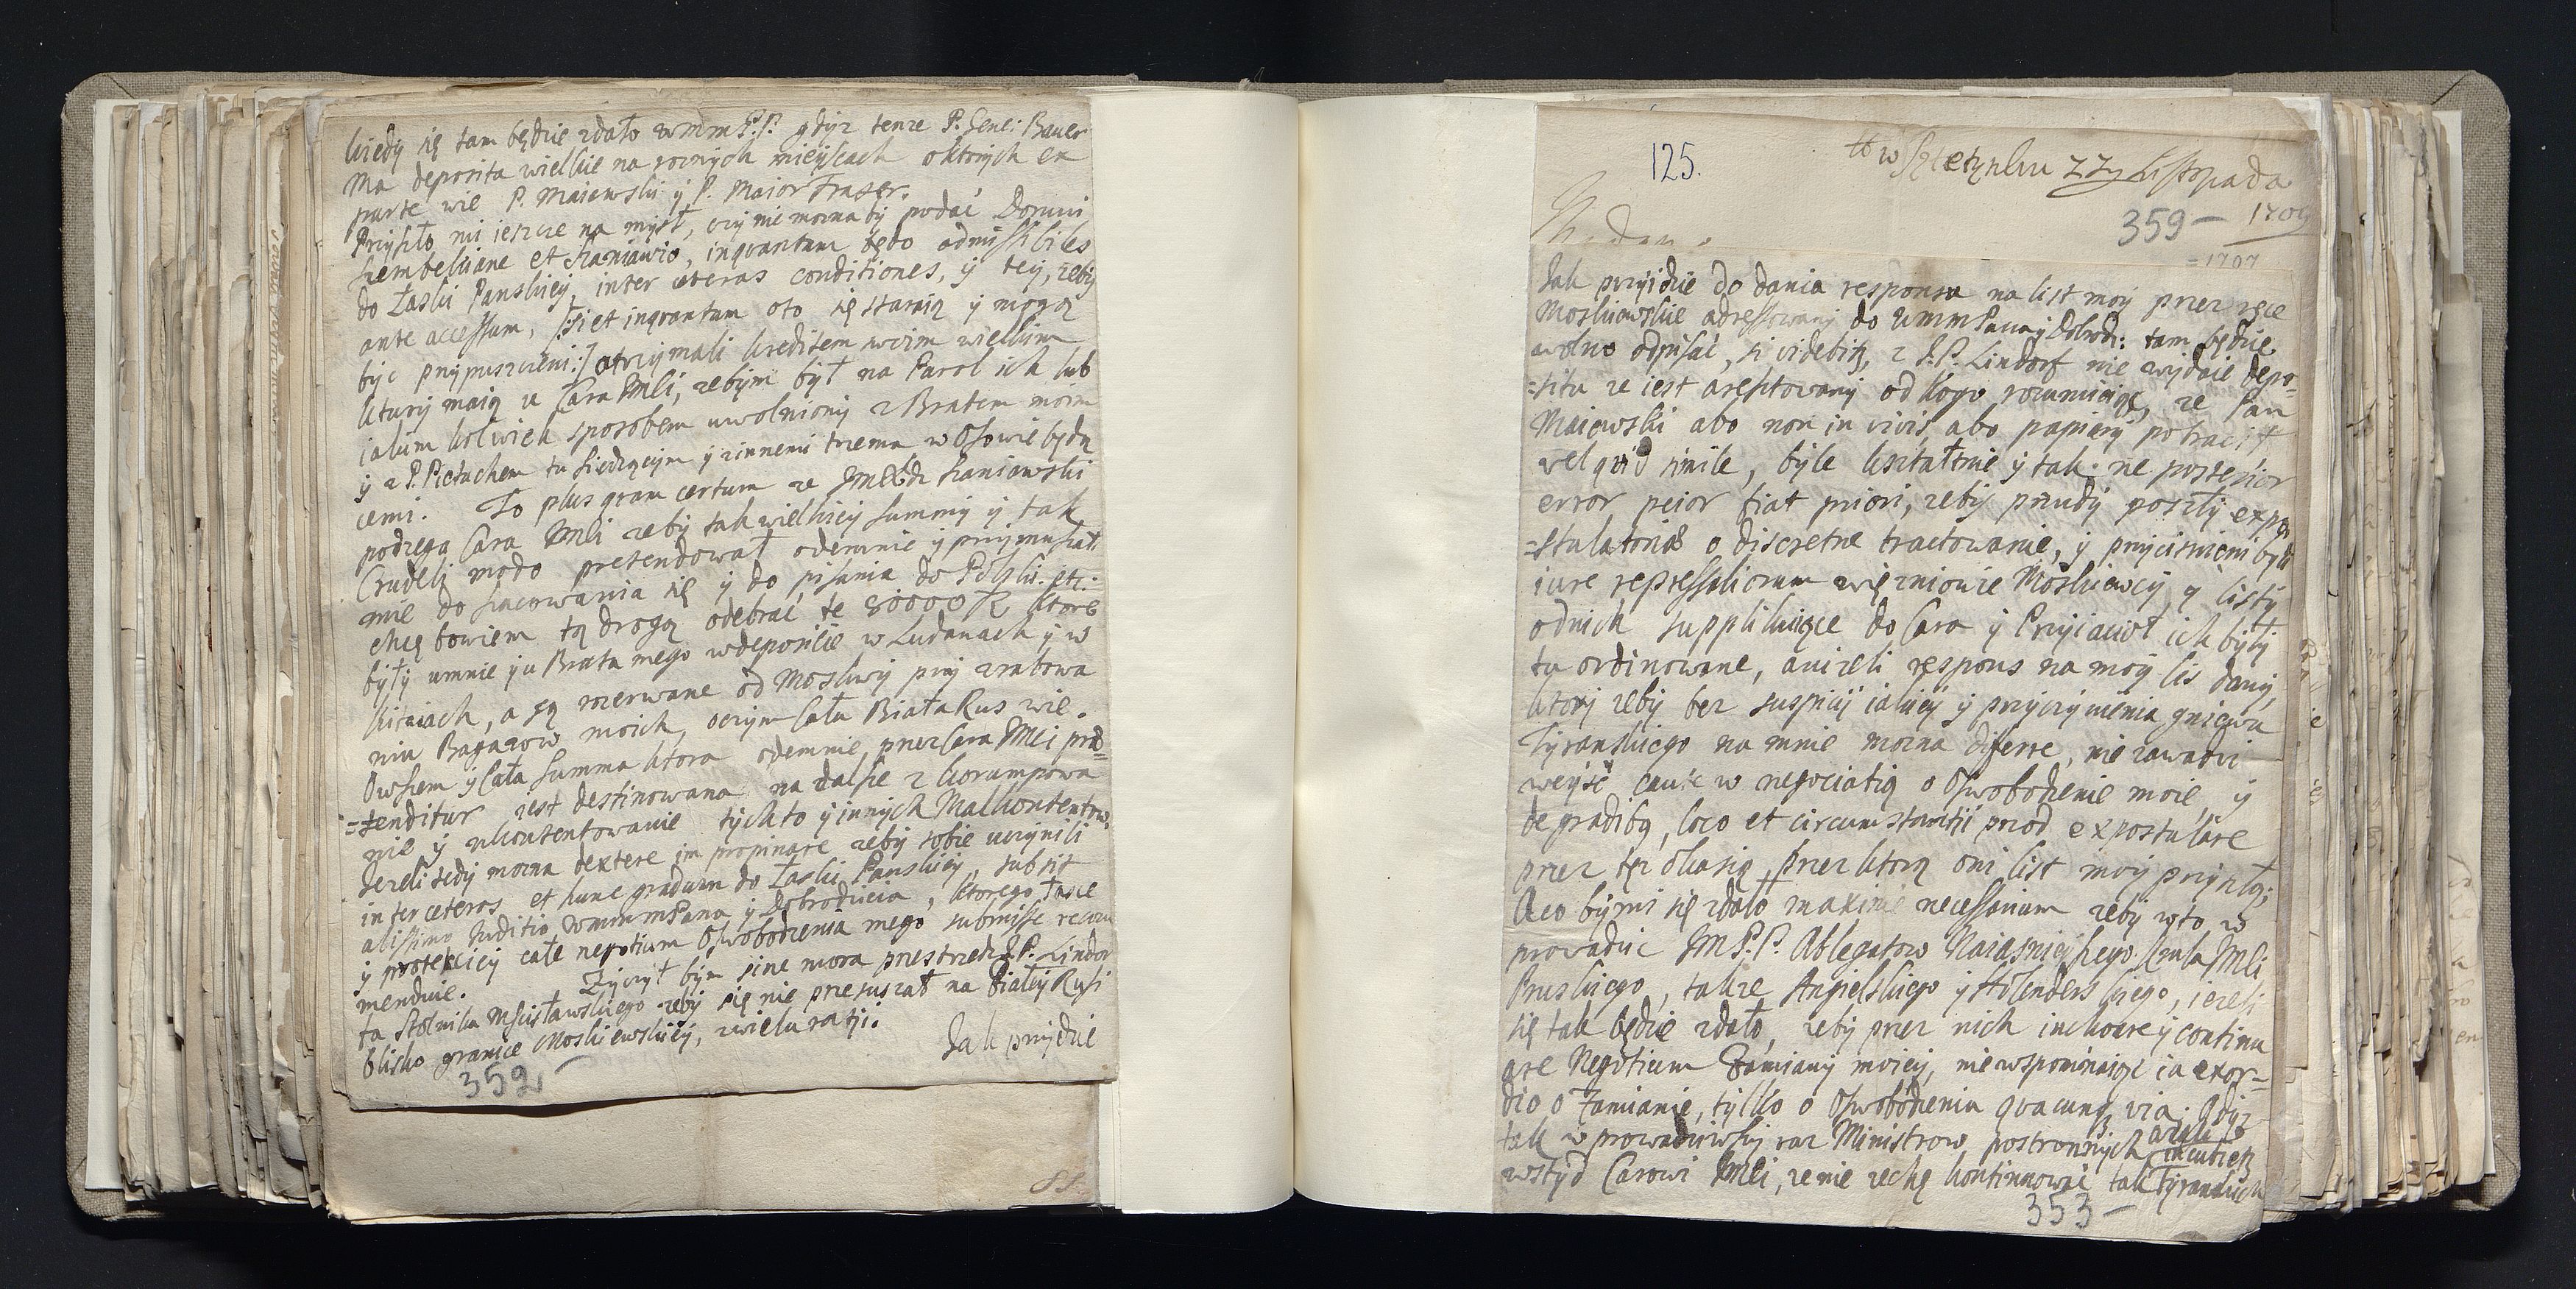 kiedy się tam będzie zdało WMM P.P. gdyz tenze P. Gene: Bauer
Ma deposita wielkie na roznych mieyscach oktorych ex
parte wie P. Maiewski y P. Maior Fraser.
Przyszło mi ieszcze na mysl, czy nie moznaby podać Domini
Szembekiane et Szaniawio, inqvantum będo admissibiles
do Łaski Panskiey, inter ceteras conditiones, y tey, zeby
ante accessum, /:si et inqvantum oto się staraią y mogą
być przypuszczeni:/ otrzymali kreditem swoim wielkim
ktury maią u Cara JMci, zebym był na Parol ich lub
iakim kolwiek sposobem uwolniony z Bratem moim
y z P. Pietuchem tu siedzącym y zinnemi trzema w Osowie będą
cemi. To plus qvam certum ze JMX Szaniawski
podzega Cara JMci zeby tak wielkiey summy y tak
crudeli modo pretendował odemnie y przymuszał
mie do szacowania się y do pisania do Polski. etc:
chcę bowiem tą drogą odebrać te 80000 R ktore
były umnie y u Brata mego wdeposicie w Ludanach y w
kiraiach, a są rozerwane od Moskwy przy zrabowa
niu Bagazow moich, oczym Cała BiałaRus wie.
Owszem y Cała Summa ktora odemnie przez Cara JMci præ=
=tenditur iest destinowana na dalsze z korumpowa
nie y ukontentowanie tychto y innych Malkontentow.
Jezeli tedy mozna dextere im propinare zeby sobie uczynili
inter ceteros et hunc gradum do Łaski Panskiey, subsit
altissimo Juditio WMM MPana y Dobrodzieia, ktorego Łasce
y protekciey całe negotium Oswobodzenia mego submisse recom
menduie. Zyczył bym sine mora przestrzedz J.P. Lindor
fa Stolnika Mscisławskiego zeby się nie przesuszał na Białey Rusi
blisko granice Moskiewskiey, zwielu racji.
Jak przyidzie
352
88.
125.
w Sztetynku 27 Listopada
359 1709
=1707
Jak przyidzie do dania responsu na list moy przez ręce
Moskiewskie adressowany do WMMPana y Dobrodz: tam będzie
wolno odpisać, si videbitz, z J.P. Lindorf nie wyidzie depo=
=situ ze iest aresztowany od kogo rozumieiąc, ze Pan
Maiewski abo non in vivis, abo papiery potracił
vel qvid simile, byle kształtnie y tak: ne posterior
error peior fiat priori, zeby prudy poszły expo
=stulatoriæ o discretne tractowanie, y przycisnieni będą
iure repressaliorum więzniowie Moskiewscy, y listy
odnich supplikuiące do Cara y Przyiacioł ich były
tu ordinowane, anizeli respons na moy lis dany,
ktory zeby bez suspicij iakiey y przyczynienia gniewu
Tyranskiego na mnie mozna differre, nie zawadzi
weyść caute w negociatią o Oswobodzenie moie, y
de gradibq, loco et circumstantij prod expostulare
przez tęz okasią, przez ktorą oni list moy przyszlą;
Aco bymi się zdało maxime necessarium zeby wto w
prowadzic JM P.P. Ablegatow Naiasnieyszego Krula JMci
Pruskiego, takze Angielskiego y Hollenders kiego, iezeli
się tak będzie zdało, zeby przez nich inchoare y continu
are Negotium Zamiany moiey, nie wspominaiąc ia exor=
dio o Zamianie, tylko o Oswobodzeniu qvacunqz via. Gdyz
tak wprowadziwszy raz Ministrow postronnych
incutietz
wstyd Carowi JMci, ze nie zechę kontinuować tak Tyranskich
353